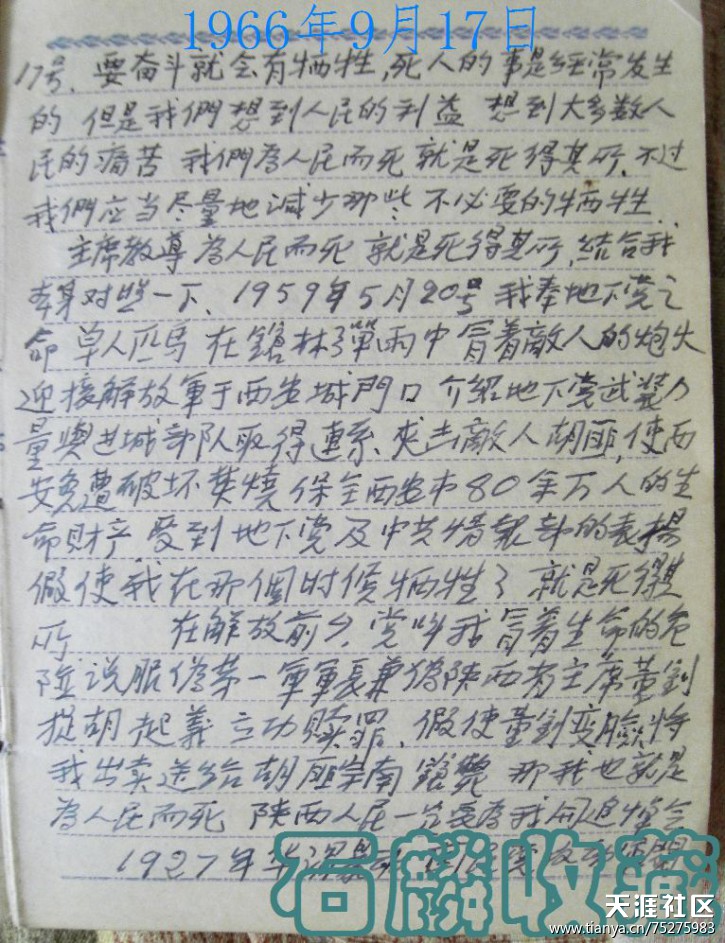 1966年9月17日
17号、要奋斗就会有牺牲,死人的事是经常发生
的 但是我們想到人民的利益 想到大多数人
民的痛苦 我們為人民而死 就是死得其所、不过
我們应当尽量地减少那些 不必要的牺牲.
主席教導為人民而死 就是死得其所,結合我
本身对照一下、1959年5月20号 我奉地下党之
命 单人匹馬 在鎗林彈雨中冒着敵人的炮火
迎接解放軍于西安城門口 介紹地下党武裝力
量與进城部队取得連系、夹击敵人胡匪,使西
安免遭破坏焚燒 保全西安市80余万人的生
命財产 受到地下党及中共情報部的表揚
假使我在那個时候牺牲了 就是死得其
所 在解放前夕,党叫我冒着生命的危
险说服偽第一軍軍長兼偽陕西省主席董釗
捉胡起義 立功赎罪、假使董釗变臉将
我出卖送给胡匪宗南 鎗斃 那我也就是
為人民而死 陕西人民一定要為我開追悼会
1927年
石麟收藏
天涯社区
www.tianya.cn/75275983